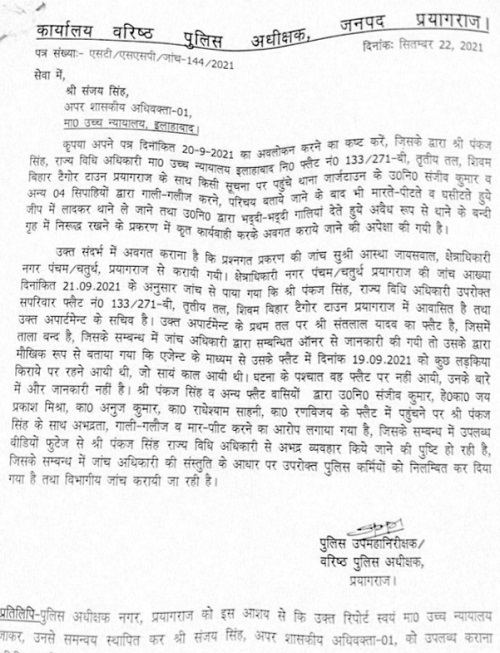 कार्यालय वरिष्ठ पुलिस अधीक्षक, जनपद प्रयागराज।
पत्र संख्याः- एसटी/एसएसपी/जांच-144/2021
दिनांकः सितम्बर 22, 2021
सेवा में,
श्री संजय सिंह,
अपर शासकीय अधिवक्ता-01,
मा0 उच्च न्यायालय, इलाहाबाद।
कृपया अपने पत्र दिनांकित 20-9-2021 का अवलोकन करने का कष्ट करें, जिसके द्वारा श्री पंकज
सिंह, राज्य विधि अधिकारी मा0 उच्च न्यायालय इलाहाबाद नि0 फ्लैट नं0 133/271-बी, तृतीय तल, शिवम
बिहार टैगोर टाउन प्रयागराज के साथ किसी सूचना पर पहुंचे थाना जार्जटाउन के उ0नि0 संजीव कुमार व
अन्य 04 सिपाहियों द्वारा गाली-गलौज करने, परिचय बताये जाने के बाद भी मारते-पीटते व घसीटते हुये
जीप में लादकर थाने ले जाने तथा उ0नि0 द्वारा भद्दी-भद्दी गालियां देते हुये अवैध रूप से थाने के बन्दी
गृह में निरूद्ध रखने के प्रकरण में कृत कार्यवाही करके अवगत कराये जाने की अपेक्षा की गयी है।
उक्त संदर्भ में अवगत कराना है कि प्रश्नगत प्रकरण की जांच सुश्री आस्था जायसवाल, क्षेत्राधिकारी
नगर पंचम/चतुर्थ, प्रयागराज से करायी गयी। क्षेत्राधिकारी नगर पंचम/चतुर्थ प्रयागराज की जांच आख्या
दिनांकित 21.09.2021 के अनुसार जांच से पाया गया कि श्री पंकज सिंह, राज्य विधि अधिकारी उपरोक्त
सपरिवार फ्लैट नं0 133/271-बी, तृतीय तल, शिवम बिहार टैगोर टाउन प्रयागराज में आवासित है तथा
उक्त अपार्टमेन्ट के सचिव है। उक्त अपार्टमेन्ट के प्रथम तल पर श्री संतलाल यादव का फ्लैट है, जिसमें
ताला बन्द है, जिसके सम्बन्ध में जांच अधिकारी द्वारा सम्बन्धित ऑनर से जानकारी की गयी तो उसके द्वारा
मौखिक रूप से बताया गया कि एजेन्ट के माध्यम से उसके फ्लैट में दिनांक 19.09.2021 को कुछ लड़किया
किराये पर रहने आयी थी, जो सायं काल आयी थी। घटना के पश्चात वह फ्लैट पर नहीं आयी, उनके बारे
में और जानकारी नहीं है। श्री पंकज सिंह व अन्य फ्लैट वासियों द्वारा उ0नि0 संजीव कुमार, हे0का0 जय
प्रकाश मिश्रा, का0 अनुज कुमार, का0 राधेश्याम साहनी, का0 रणविजय के फ्लैट में पहुंचने पर श्री पंकज
सिंह के साथ अभद्रता, गाली-गलौज व मार-पीट करने का आरोप लगाया गया है, जिसके सम्बन्ध में उपलब्ध
वीडियों फुटेज से श्री पंकज सिंह राज्य विधि अधिकारी से अभद्र व्यवहार किये जाने की पुष्टि हो रही है,
जिसके सम्बन्ध में जांच अधिकारी की संस्तुति के आधार पर उपरोक्त पुलिस कर्मियों को निलम्बित कर दिया
गया है तथा विभागीय जांच करायी जा रही है।
पुलिस उपमहानिरीक्षक/
वरिष्ठ पुलिस अधीक्षक,
प्रयागराज।
प्रतिलिपि-पुलिस अधीक्षक नगर, प्रयागराज को इस आशय से कि उक्त रिपोर्ट स्वयं मा0 उच्च न्यायालय
जाकर, उनसे समन्वय स्थापित कर श्री संजय सिंह, अपर शासकीय अधिवक्ता-01, को उपलब्ध कराना